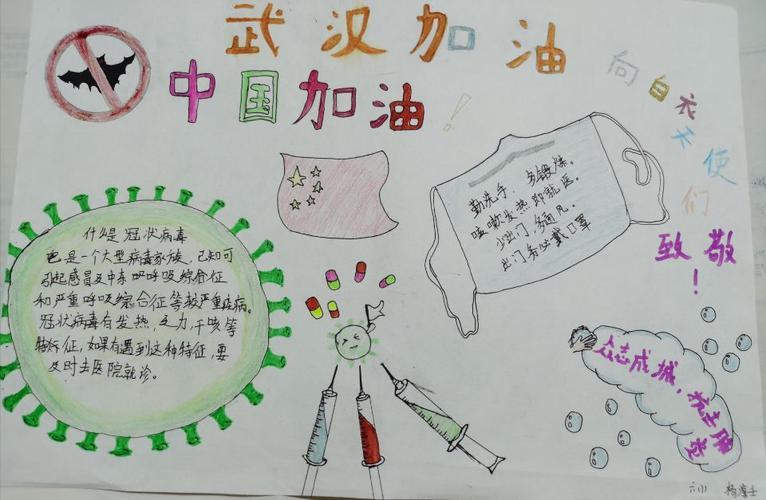 武汉加油
中国加油！
向白衣天使们
致敬！
什么是冠状病毒
它是一个大型病毒家族，已知可
引起感冒及中东呼吸综合征
和严重呼吸综合征等较严重疾病。
冠状病毒有发热，乏力，干咳等
特征，如果有遇到这种特征，要
及时去医院就诊。
勤洗手，多锻炼。
咳嗽发热即就医。
少出门，多通风。
出门务必戴口罩
众志成城，抗击肺炎
六(1)